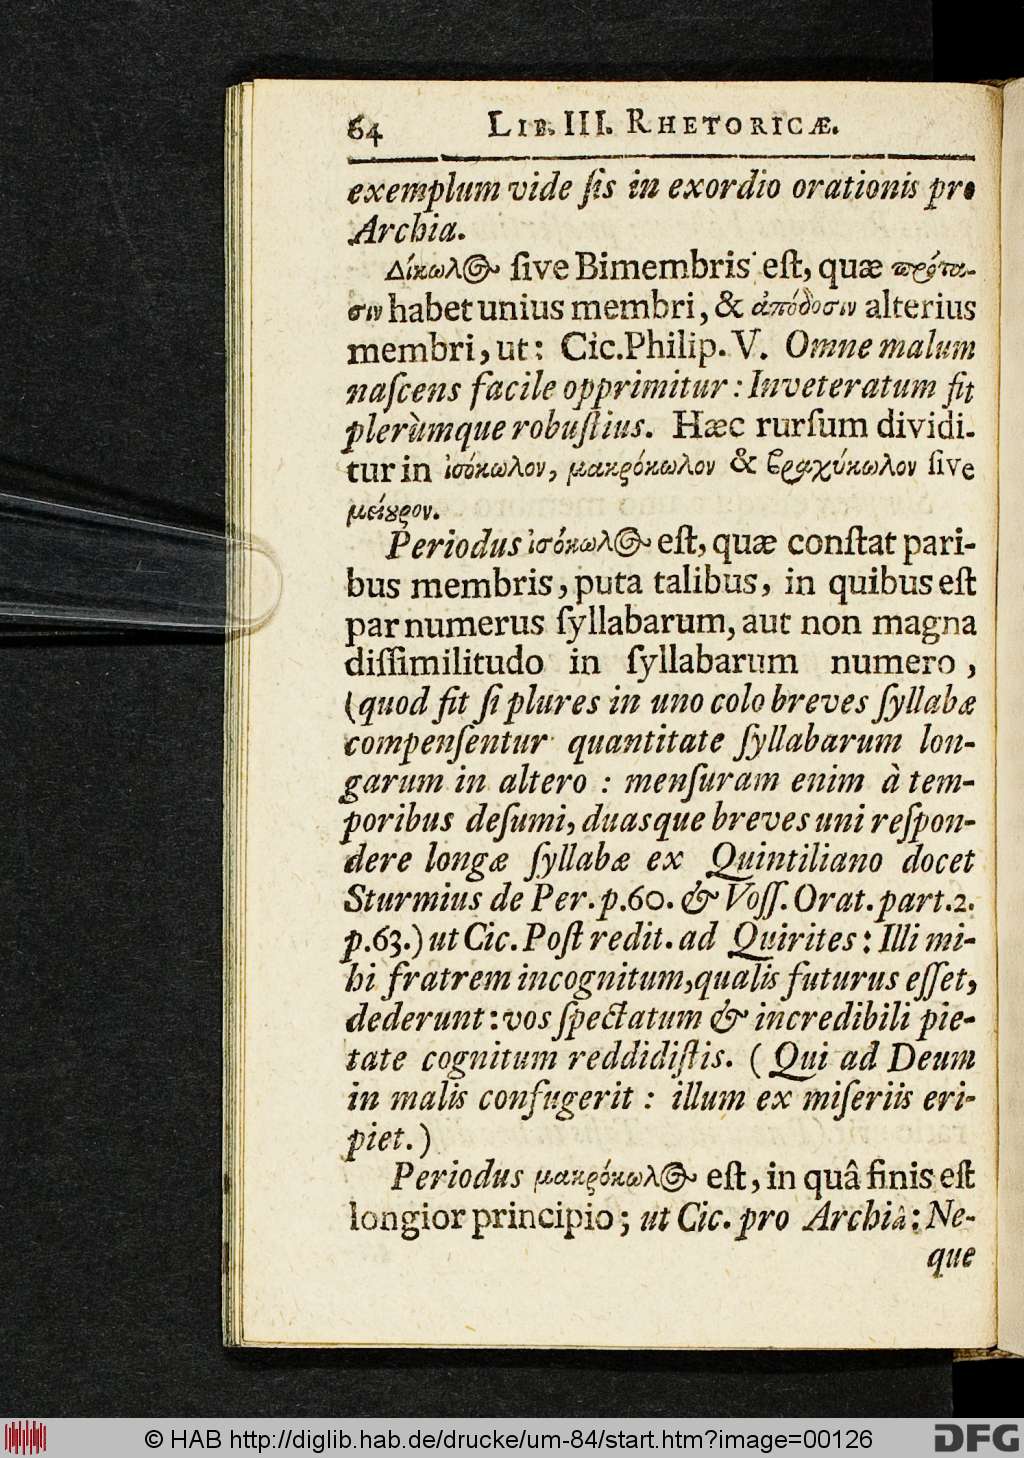 64 LIB. III. RHETORICÆ.
exemplum vide ſis in exordio orationis pro
Archia.
Δίκωλος ſive Bimembris eſt, quæ πρότα-
σιν habet unius membri, & ἀπόδοσιν alterius
membri, ut: Cic. Philip. V. Omne malum
naſcens facile opprimitur: Inveteratum fit
plerùmque robuſtius. Hæc rurſum dividi-
tur in ἰσόκωλον, μακρόκωλον & βραχύκωλον ſive
μείουρον.
Periodus ἰσόκωλος eſt, quæ conſtat pari-
bus membris, puta talibus, in quibus eſt
par numerus ſyllabarum, aut non magna
diſſimilitudo in ſyllabarum numero,
(quod fit ſi plures in uno colo breves ſyllabæ
compenſentur quantitate ſyllabarum lon-
garum in altero : menſuram enim à tem-
poribus deſumi, duasque breves uni reſpon-
dere longæ ſyllabæ ex Quintiliano docet
Sturmius de Per. p. 60. & Voſſ. Orat. part. 2.
p. 63.) ut Cic. Poſt redit. ad Quirites: Illi mi-
hi fratrem incognitum, qualis futurus eſſet,
dederunt: vos ſpectatum & incredibili pie-
tate cognitum reddidiſtis. (Qui ad Deum
in malis confugerit : illum ex miſeriis eri-
piet.)
Periodus μακρόκωλος eſt, in quâ finis eſt
longior principio; ut Cic. pro Archiâ: Ne-
que
© HAB http://diglib.hab.de/drucke/um-84/start.htm?image=00126
DFG